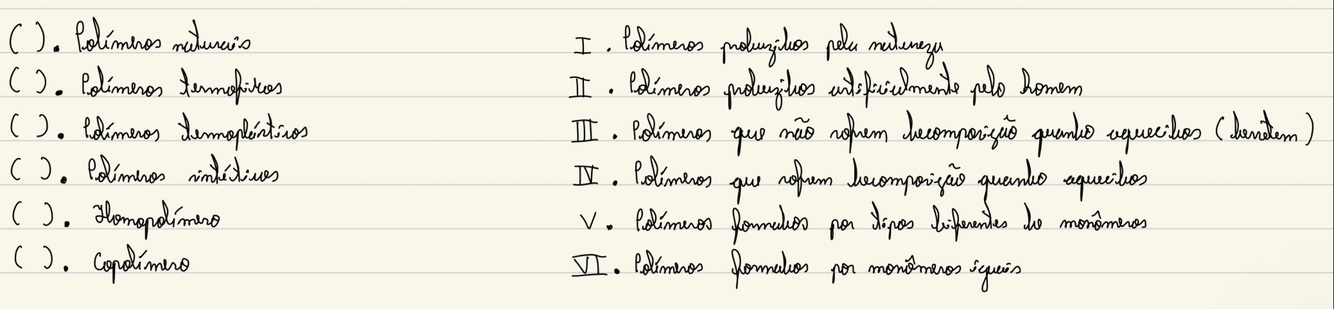 ( ). Polímeros naturais
( ). Polímeros termofixos
( ). Polímeros termoplásticos
( ). Polímeros sintéticos
( ). Homopolímero
( ). Copolímero
I. Polímeros produzidos pela natureza
II. Polímeros produzidos artificialmente pelo homem
III. Polímeros que não sofrem decomposição quando aquecidos (derretem)
IV. Polímeros que sofrem decomposição quando aquecidos
V. Polímeros formados por tipos diferentes de monômeros
VI. Polímeros formados por monômeros iguais